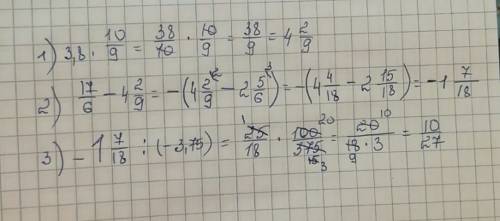 1) 3,8 · 10/9 = 38/10 · 10/9 = 38/9 = 4 2/9
2) 17/6 - 4 2/9 = -(4 2/9 - 2 5/6) = -(4 4/18 - 2 15/18) = -1 7/18
3) -1 7/18 : (-3,75) = 25/18 · 100/375 = 20/18·3 = 10/27